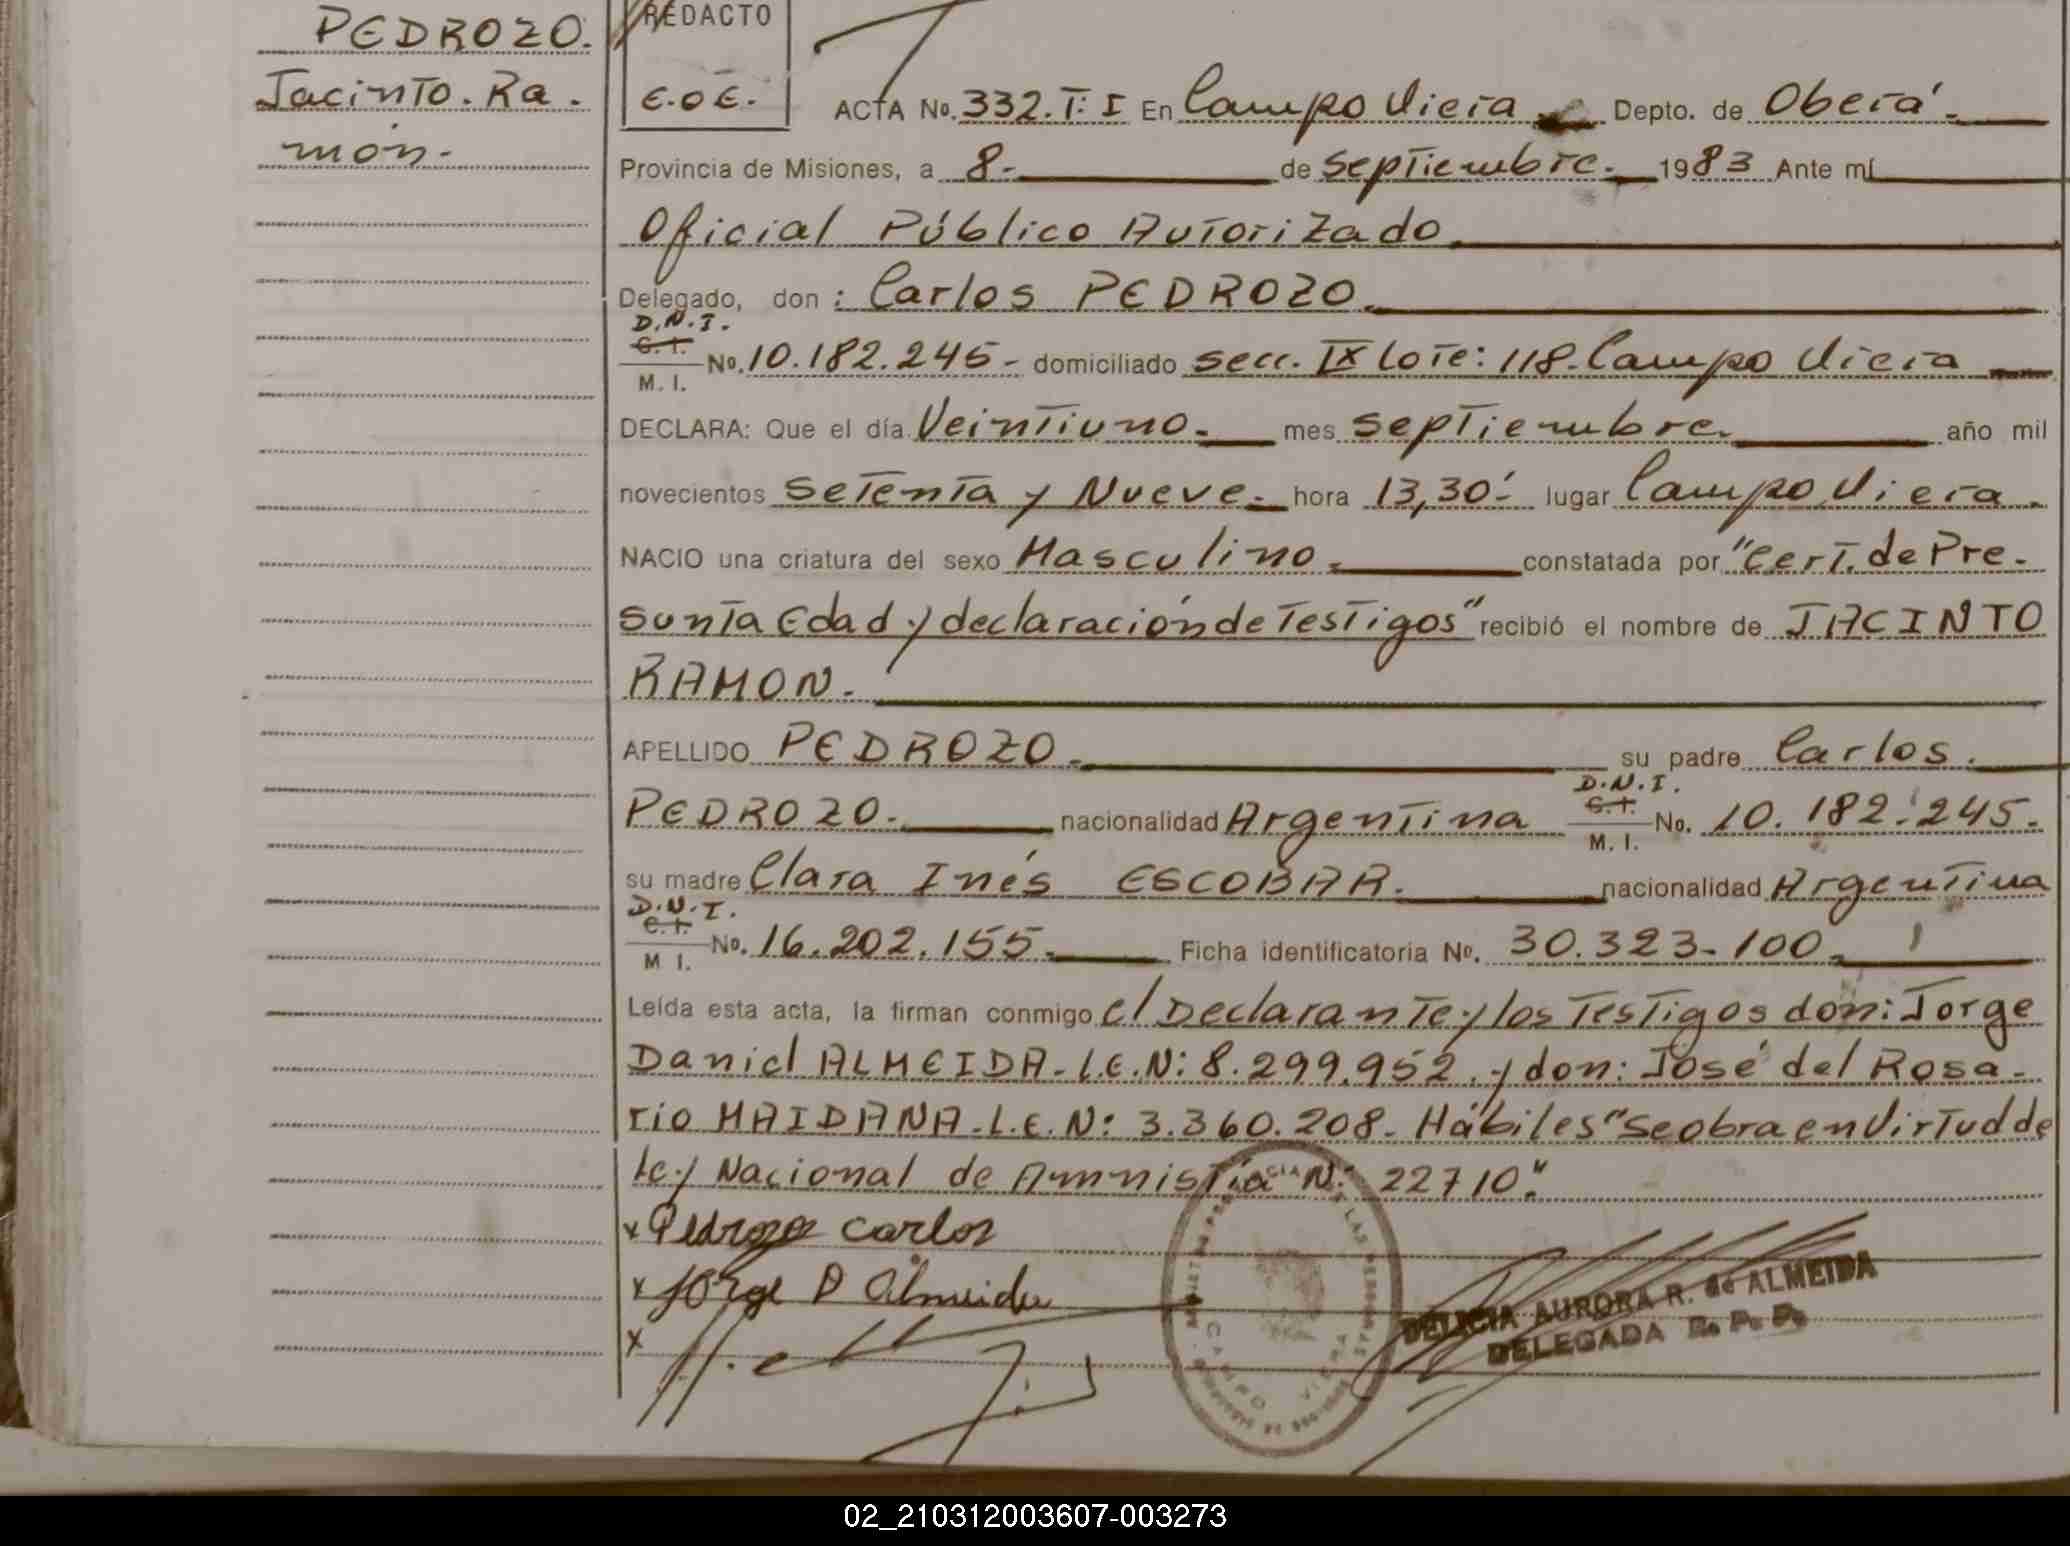 PEDROZO.
Jacinto. Ra.
món.-
REDACTO
E.O.E.
ACTA No. 332. T: I En Campo Viera Depto. de Oberá.
Provincia de Misiones, a 8.- de Septiembre. 1983 Ante mí
Oficial Público Autorizado
Delegado, don: Carlos PEDROZO.
D.N.I.
C.I. M. I. No. 10.182.245- domiciliado secc. IX Lote: 118. Campo Viera
DECLARA: Que el día Veintiuno. mes Septiembre. año mil
novecientos Setenta y Nueve. hora 13,30'- lugar Campo Viera.
NACIO una criatura del sexo Masculino. constatada por "Cert. de Pre-
sunta Edad y declaración de Testigos" recibió el nombre de JACINTO
RAMON.-
APELLIDO PEDROZO.- su padre Carlos.
D.N.I.
PEDROZO.- nacionalidad Argentina C.I. M. I. No. 10.182.245.
su madre Clara Inés ESCOBAR. nacionalidad Argentina
D.N.I.
C.I. M I. No. 16.202.155. Ficha identificatoria No. 30.323-100.
Leída esta acta, la firman conmigo el Declarante y los Testigos don: Jorge
Daniel ALMEIDA- L.E.N: 8.299.952. y don: José del Rosa-
rio MAIDANA- L.E.N: 3.360.208- Hábiles "Se obra en Virtud de
Ley Nacional de Amnistía N: 22710."
x Pedrozo Carlos
x Jorge D Almeida
x
CAMPO VIERA
DELICIA AURORA R. de ALMEIDA
DELEGADA R. P. P.
02_210312003607-003273